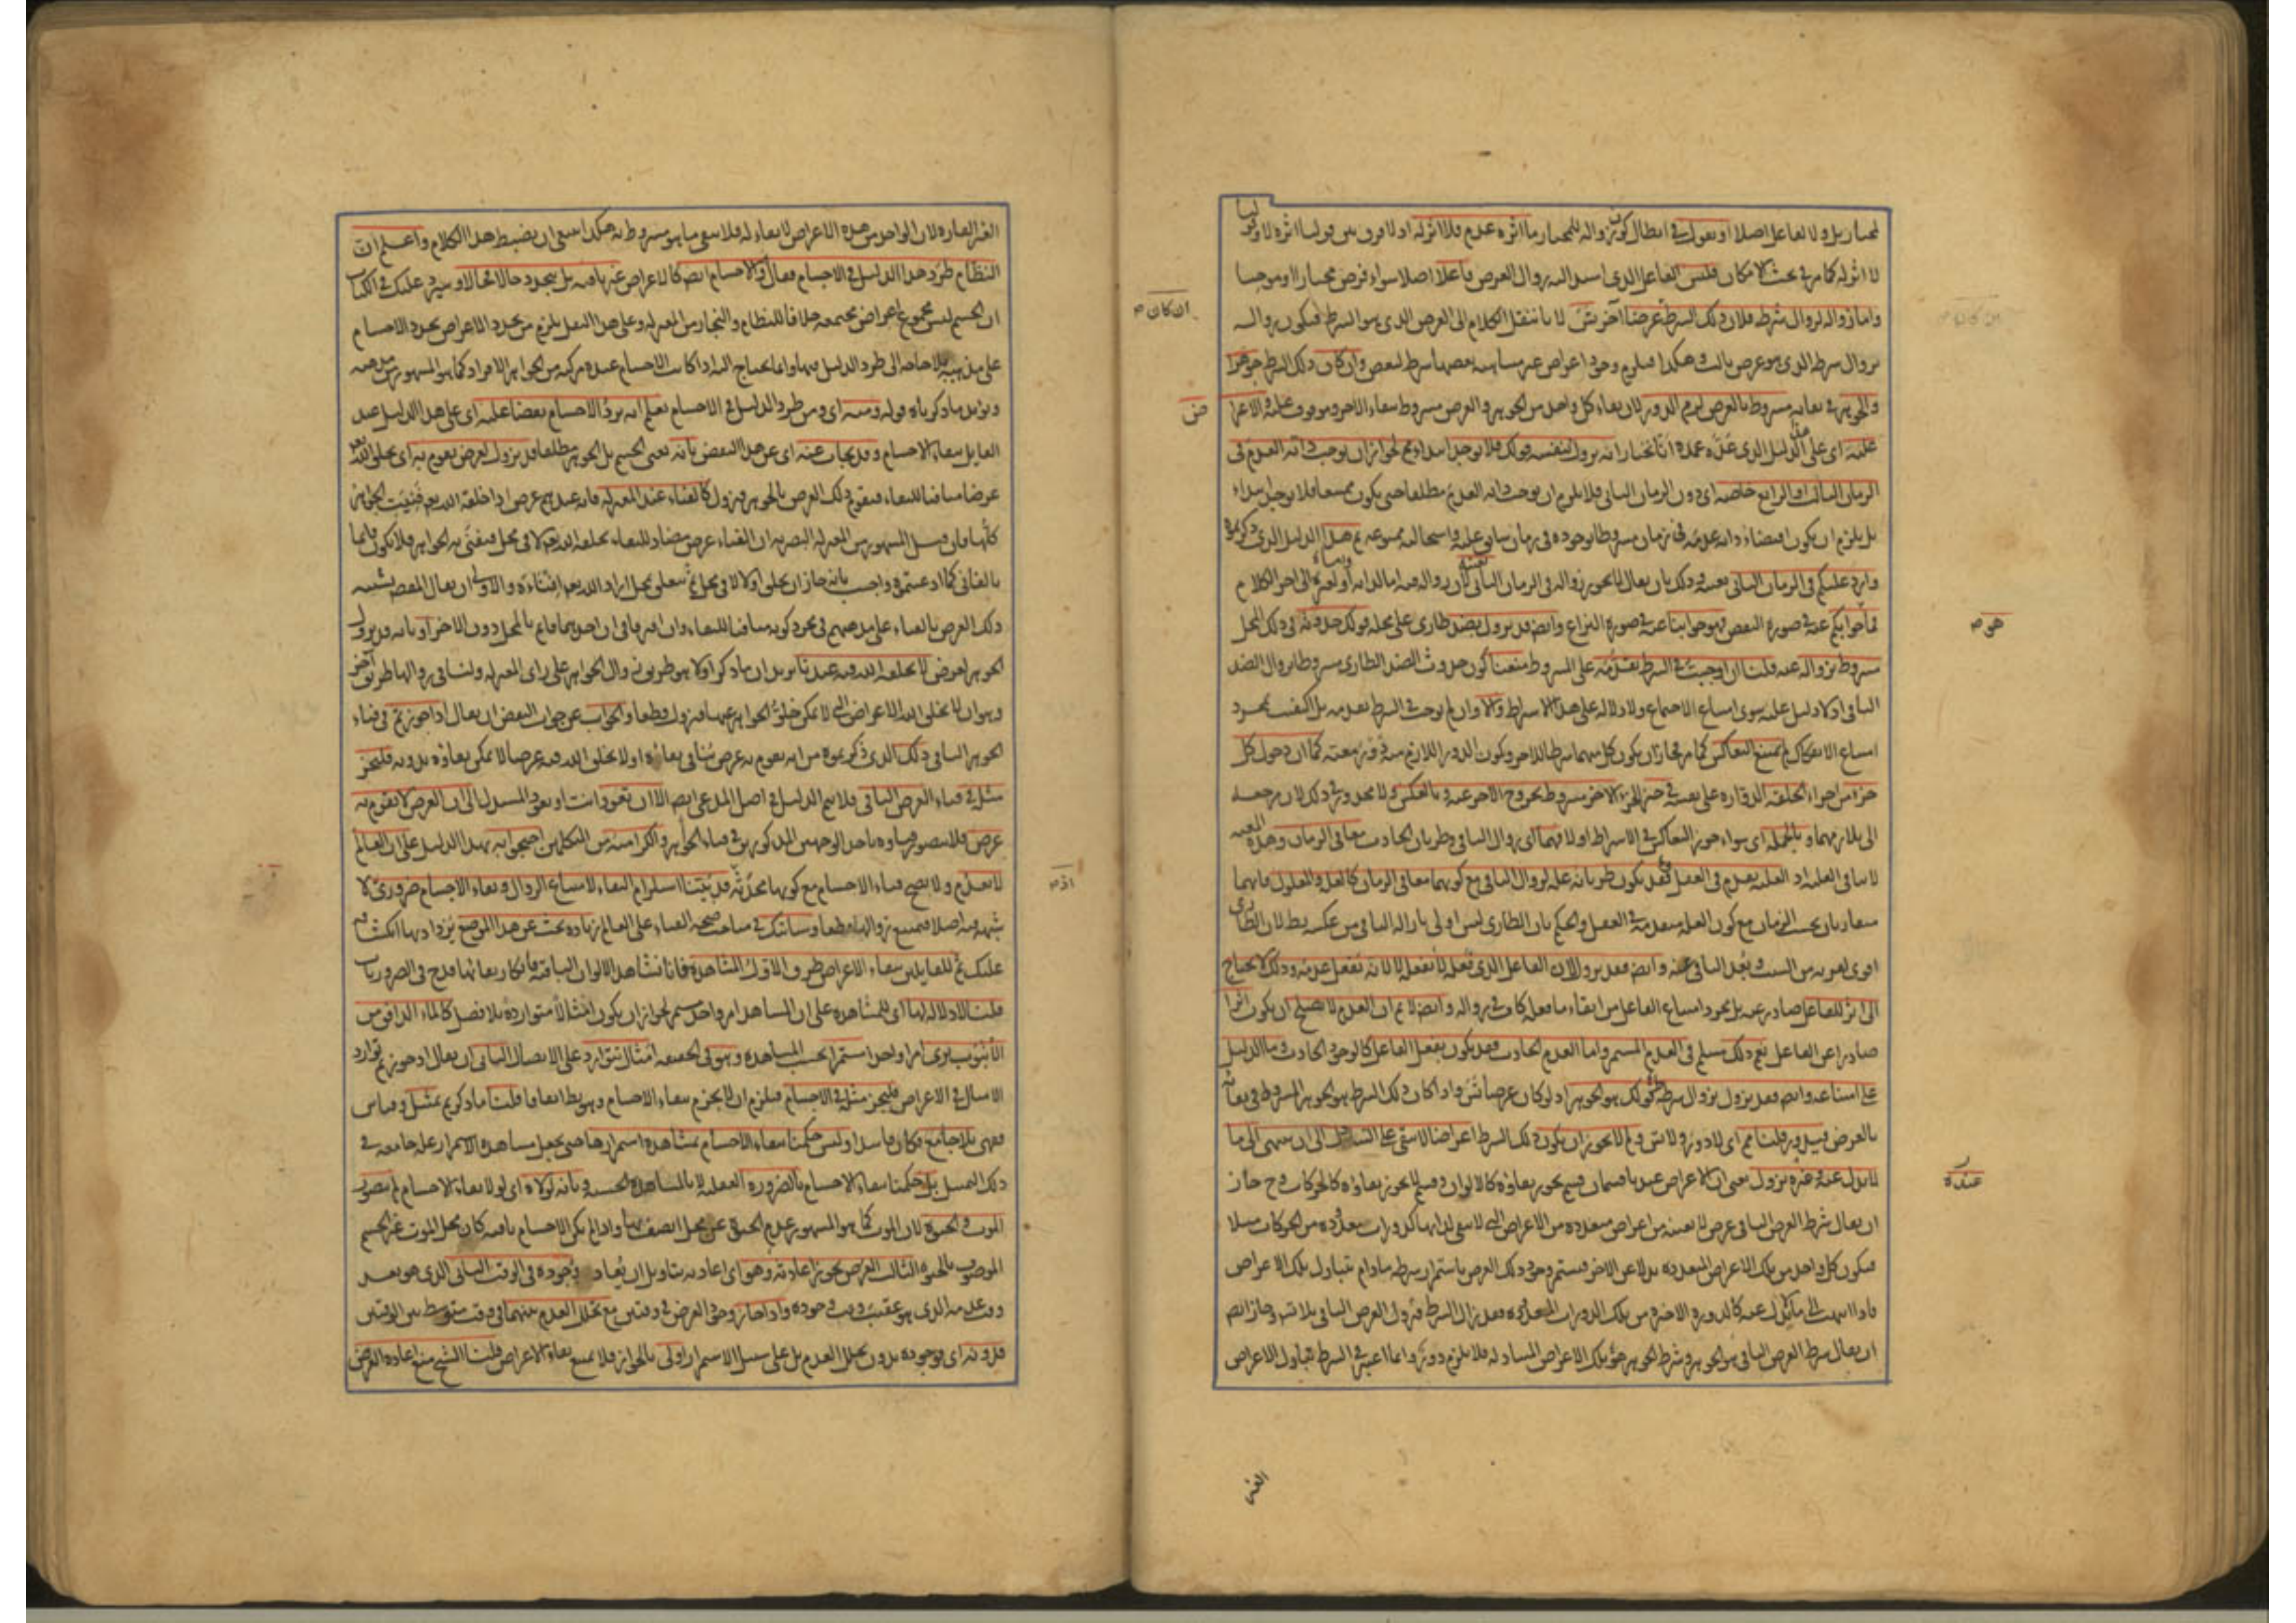 لمختار بل ولا لفاعل اصلا او نقول في ابطال كون زواله لمختار ما اثره عدم فلا اثر له اذ لا فرق بين قولنا اثره لا وقولنا
لا اثر له كما مر في بحث الامكان فليس الفاعل الذي اسند اليه زوال العرض فاعلا اصلا سواء فرض مختارا او موجبا
واما زواله لزوال شرطه فلان ذلك الشرط ان كان عرضا آخر تس لانا ننقل الكلام الى العرض الذي هو الشرط فيكون زواله
بزوال شرطه الذي هو عرض ثالث وهكذا فيلزم وجود اعراض غير متناهية بعضها شرط لبعض وان كان ذلك الشرط جوهرا
والجوهر في بقائه مشروط بالعرض لزم الدور لان بقاء كل واحد من الجوهر والعرض مشروط ببقاء الاخر وموقوف عليه والاعتراض
عليه اى على هذا الدليل الذي عده عمدة انا نختار انه يزول لنفسه قولك فلا يوجد ابتداء مم لجواز ان يوجب ذاته العدم في
الزمان الثالث او الرابع خاصة اى دون الزمان الثاني فلا يلزم ان يوجب ذاته العدم مطلقا حتى يكون ممتنعا فلا يوجد ابتداء
بل يلزم ان يكون اقتضاء ذاته عدمه في زمان مشروطا بوجوده في زمان سابق عليه واستحالته ممنوعة ثم هذا الدليل الذي ذكرتموه
وارد عليكم في الزمان الثاني بعينه وذلك بان يقال لا يجوز زواله في الزمان الثاني لان زواله فيه اما لذاته او لغيره الى اخر الكلام
فما جوابكم عنه في صورة النقض فهو جوابنا عنه في صورة النزاع وايضا قد يزول بضد طارئ على محله قولك حدوثه في ذلك المحل
مشروط بزواله عنه قلنا ان اوجبت في الشرط تقدمه على المشروط منعنا كون حدوث الضد الطارئ مشروطا بزوال الضد
الباقي اذ لا دليل عليه سوى امتناع الاجتماع ولا دلالة على هذا الاشتراط والا وان لم توجب في الشرط تقدمه بل اكتفيت بمجرد
امتناع الانفكاك لم يمتنع التعاكس كما مر فجاز ان يكون كل منهما شرطا للاخر ويكون الدور اللازم منه دور معية كما ان دخول كل
جزء من اجزاء الحلقة الدوارة على نفسه في حيز الجزء الاخر مشروط بخروج الاخر عنه وبالعكس ولا محذور في ذلك لان مرجعه
الى تلازمهما وبالجملة اى سواء جوز التعاكس في الاشتراط او لا فهما اى زوال الباقي وطريان الحادث معا في الزمان وهذه المعية
لا تنافي العلية اذ العلة تقدم في العقل فقد يكون طريانه علة لزوال الباقي مع كونهما معا في الزمان كالعلة والمعلول فانهما
متقارنان بحسب الزمان مع كون العلة متقدمة في العقل والحكم بان الطارئ ليس اولى بازالة الباقي من عكسه بط لان الطارئ
اقوى لقربه من السبب وبعد الباقي عنه وايضا فقد يزول لان الفاعل الذي فعله لا يفعله لا لانه يفعل عدمه وذلك لا يحتاج
الى اثر للفاعل صادر عنه بل مجرد امتناع الفاعل من ابقاء ما فعله كاف في زواله وايضا لا نم ان العدم لا يصلح ان يكون اثرا
صادرا عن الفاعل نعم ذلك مسلم في العدم المستمر واما العدم الحادث فقد يكون بفعل الفاعل كالوجود الحادث وما الدليل
على امتناعه وايضا فقد يزول بزوال شرط قولك هو الجوهر اذ لو كان عرضا تس واذا كان ذلك الشرط هو الجوهر المشروط في بقائه
بالعرض فيدور قلنا مم اى لا دور ولا تس ولم لا يجوز ان يكون ذلك الشرط اعراضا لا تبقى على التبادل الى ان ينتهي الى ما
لا بدل عنه وعنده يزول يعني ان الاعراض عندنا قسمان قسم يجوز بقاؤه كالالوان وقسم لا يجوز بقاؤه كالحركات وح جاز
ان يقال شرط العرض الباقي عرض لا بعينه من اعراض متعددة من الاعراض التي لا تبقى لذاتها كدورات معدودة من الحركات مثلا
فيكون كل واحد من تلك الاعراض المتعددة بدلا عن الاخر فيستمر وجود ذلك العرض باستمرار شرطه مادام يتبادل تلك الاعراض
فاذا انتهت الى ما لا بدل عنه كالدورة الاخيرة من تلك الدورات المعدودة فقد زال الشرط فيزول العرض الباقي بلا تس وجاز ايضا
ان يقال شرط العرض الباقي هو الجوهر وشرط الجوهر هو تلك الاعراض المتبادلة فلا يلزم دور وانما اعتبر في الشرط تبادل الاعراض
ان كان
ض
هو
عنده
الغير
الغير القارة لان الواحد من هذه الاعراض لا بقاء له فلا يبقى ما هو مشروط به هكذا ينبغي ان يضبط هذا الكلام واعلم ان
النظام طرد هذا الدليل في الاجسام فقال والاجسام ايضا كالاعراض غير باقية بل يتجدد حالا فحالا وسيرد عليك في الكتاب
ان الجسم ليس مجموع اعراض مجتمعة خلافا للنظام والنجار من المعتزلة وعلى هذا النقل يلزم من تجدد الاعراض تجدد الاجسام
على مذهبه بلا حاجة الى طرد الدليل فيها وانما يحتاج اليه اذا كانت الاجسام عنده مركبة من الجواهر الافراد كما هو المشهور من مذهبه
ويؤيد ما ذكرناه قوله ومنه اى ومن طرد الدليل في الاجسام يعلم انه يرد الاجسام نقضا عليه اى على هذا الدليل عند
القايل ببقاء الاجسام وقد يجاب عنه اى عن هذا النقض بانه يعني الجسم بل الجوهر مطلقا قد يزول لعرض يقوم به اى يخلق الله تعالى
عرضا منافيا للبقاء فيقوم ذلك العرض بالجوهر فيزول كالفناء عند المعتزلة فانه عندهم عرض اذا خلقه الله تعالى فنيت الجواهر
كلها فان قيل المشهور من المعتزلة البصرية ان الفناء عرض مضاد للبقاء يخلقه الله لا في محل فيفنى به الجواهر فلا يكون قائما
بالفاني كما ادعيتموه واجيب بانه جاز ان يخلق اولا لا في محل ثم يتعلق بمحل اراد الله تعالى افناءه والاولى ان يقال المقصود تشبيه
ذلك العرض بالفناء على مذهبهم في مجرد كونه منافيا للبقاء وان افترقا في ان احدهما قائم بالمحل دون الاخر او بانه قد يزول
الجوهر لعرض لا يخلقه الله فيه عندنا يريد ان ما ذكر اولا هو طريق زوال الجواهر على راى المعتزلة ولنا في زوالها طريق آخر
وهو ان لا يخلق الله الاعراض التي لا يمكن خلو الجواهر عنها فيزول قطعا والجواب عن جواب النقض ان يقال اذا جوزتم في فناء
الجوهر الباقي ذلك الذي ذكرتموه من انه يقوم به عرض ينافي بقاءه او لا يخلق الله فيه عرضا لا يمكن بقاؤه بدونه فليجز
مثله في فناء العرض الباقي فلا يتم الدليل في اصل المدعى ايضا الا ان تعود انت او يعود المستدل الى ان العرض لا يقوم به
عرض فلا يتصور فناؤه باحد الوجهين المذكورين في فناء الجواهر والكرامية من المتكلمين احتجوا به بهذا الدليل على ان العالم
لا يعدم ولا يصح فناء الاجسام مع كونها محدثة قد بينتا استلزام البقاء لامتناع الزوال وبقاء الاجسام ضروري لا
شبهة فيه اصلا فيمتنع زوالها قطعا وسيأتيك في مباحث صحة الفناء على العالم زيادة بحث عن هذا الموضع يزداد بها انكشافه
عليك ثم للقايلين ببقاء الاعراض طرق الاول المشاهدة فانا نشاهد الالوان الباقية فانكار بقائها قدح في الضروريات
قلنا لا دلالة لها اى للمشاهدة على ان المشاهد امر واحد مستمر لجواز ان يكون امثالا متواردة بلا فصل كالماء الدافق من
الانبوب يرى امرا واحدا مستمرا بحسب المشاهدة وهو في الحقيقة امثال تتوارد على الاتصال الثاني ان يقال اذ جوزتم توارد
الامثال في الاعراض فليجز مثله في الاجسام فيلزم ان لا يجزم ببقاء الاجسام وهو بط اتفاقا قلنا ما ذكرتم تمثيل وقياس
فقهي بلا جامع فكان فاسدا وليس حكمنا ببقاء الاجسام بمشاهدة استمرارها حتى يجعل مشاهدة الاستمرار علة جامعة في
ذلك التمثيل بل حكمنا ببقاء الاجسام بالضرورة العقلية لا بالمشاهدة الحسية وبانه لولاه اى لولا بقاء الاجسام لم يتصور
الموت والحيوة لان الموت كما هو المشهور عدم الحيوة عن محل اتصف بها واذا لم يكن الاجسام باقية كان محل الموت غير الجسم
الموصوف بالحيوة الثالث العرض يجوز اعادته وهو اى اعادته بتاويل ان يعاد وجوده في الوقت الثاني الذي هو بعد
وقت عدمه الذي هو عقيب وقت وجوده واذا جاز وجود العرض في وقتين مع تخلل العدم بينهما في وقت متوسط بين الوقتين
فبدونه اى فوجوده بدون تخلل العدم بل على سبيل الاستمرار اولى بالجواز فلا يمتنع بقاء الاعراض قلنا الشيخ منع اعادة العرض
اذ